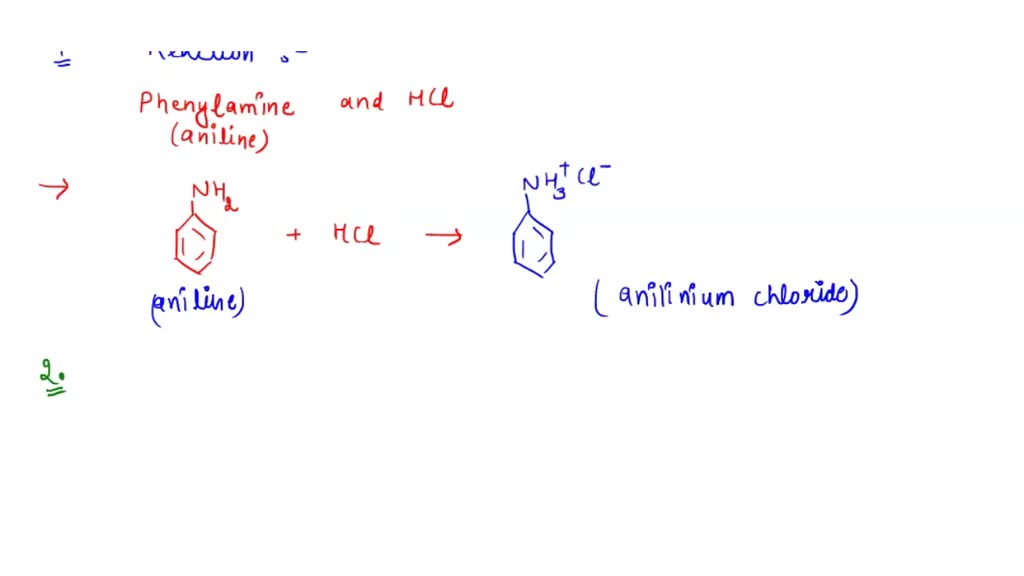 Phenylamine and HCl
(aniline)
→ NH2 + HCl → NH3+ Cl−
(aniline) (anilinium chloride)
2.